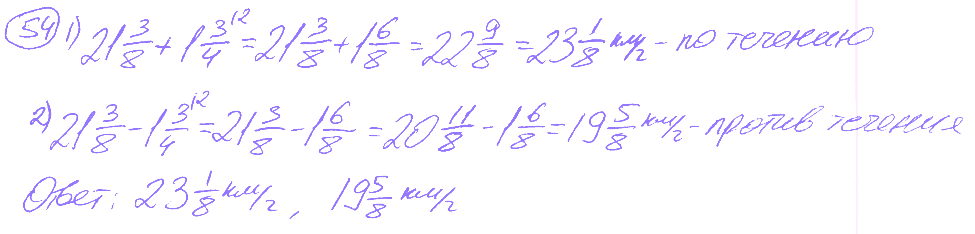 54 1) 21 3/8 + 1 3/4^{12} = 21 3/8 + 1 6/8 = 22 9/8 = 23 1/8 км/г - по течению
2) 21 3/8 - 1 3/4^{12} = 21 3/8 - 1 6/8 = 20 11/8 - 1 6/8 = 19 5/8 км/г - против течения
Ответ: 23 1/8 км/г, 19 5/8 км/г